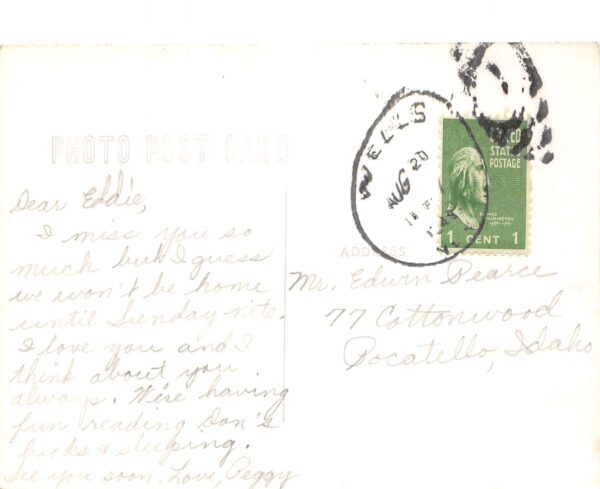 PHOTO POST CARD
Dear Eddie,
I miss you so
much but I guess
we won't be home
until Sunday nite.
I love you and I
think about you
always. We're having
fun reading Don's
books & sleeping.
See you soon. Love, Peggy
WELLS
AUG 20
STATES
POSTAGE
WASHINGTON
1 CENT 1
ADDRESS
Mr. Edwin Pearce
77 Cottonwood
Pocatello, Idaho